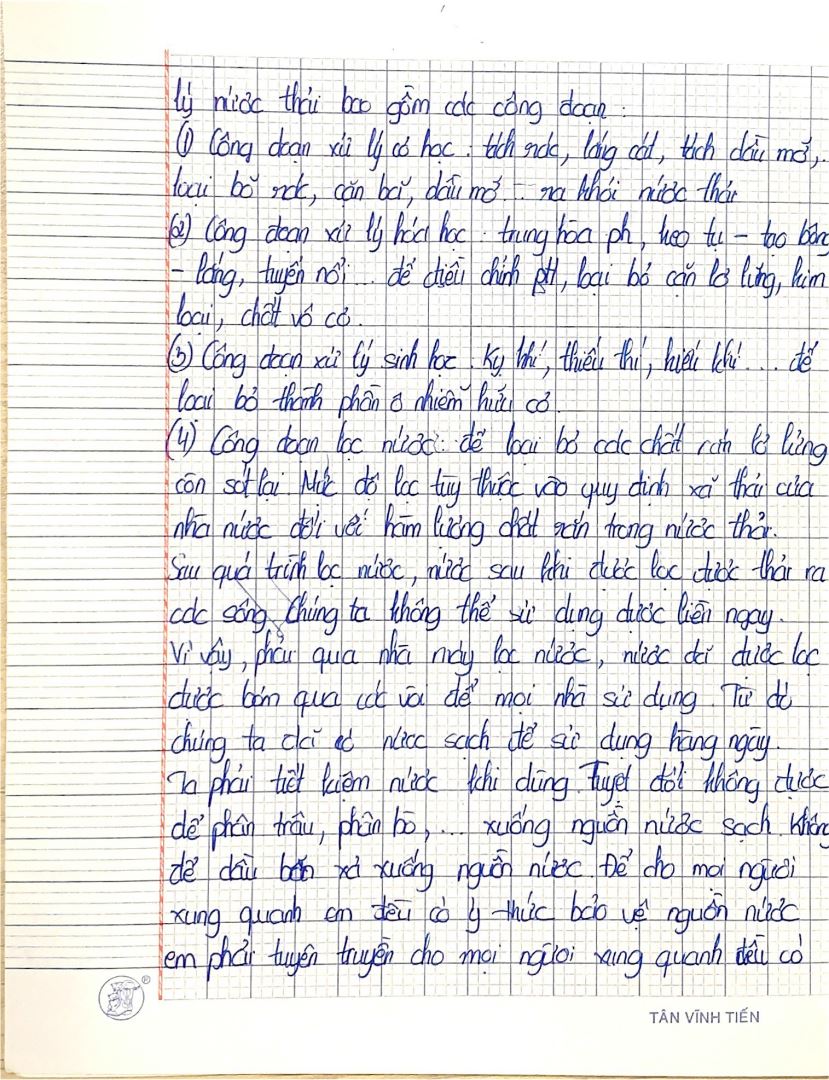 lý nước thải bao gồm các công đoạn :
(1) Công đoạn xử lý cơ học : tách rác, lắng cát, tách dầu mỡ,..
loại bỏ rác, cặn bã, dầu mỡ ... ra khỏi nước thải
(2) Công đoạn xử lý hóa học : trung hòa ph, keo tụ - tạo bông
- lắng, tuyển nổi ... để điều chỉnh pH, loại bỏ cặn lơ lửng, kim
loại, chất vô cơ.
(3) Công đoạn xử lý sinh học : Kỵ khí, thiếu khí, hiếu khí ... để
loại bỏ thành phần ô nhiễm hữu cơ.
(4) Công đoạn lọc nước: để loại bỏ các chất rắn lơ lửng
còn sót lại. Mức độ lọc tùy thuộc vào quy định xả thải của
nhà nước đối với hàm lượng chất rắn trong nước thải.
Sau quá trình lọc nước, nước sau khi được lọc được thải ra
các sông. Chúng ta không thể sử dụng được liền ngay.
Vì vậy, phải qua nhà máy lọc nước, nước đã được lọc
được bơm qua các vòi để mọi nhà sử dụng. Từ đó
chúng ta đã có nước sạch để sử dụng hàng ngày.
Ta phải tiết kiệm nước khi dùng. Tuyệt đối không được
để phân trâu, phân bò, ... xuống nguồn nước sạch. Không
để dầu bẩn xả xuống nguồn nước. Để cho mọi người
xung quanh em đều có ý thức bảo vệ nguồn nước
em phải tuyên truyền cho mọi người xung quanh đều có
TÂN VĨNH TIẾN